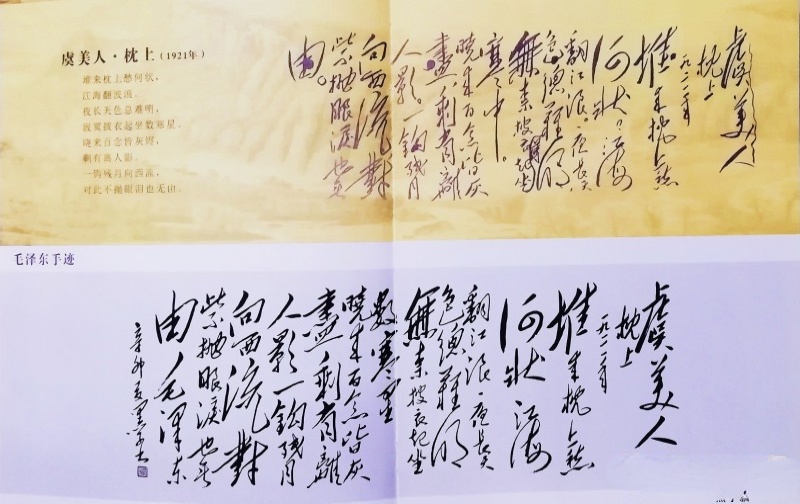 虞美人·枕上(1921年)
堆来枕上愁何状,
江海翻波浪。
夜长天色总难明,
寂寞披衣起坐数寒星。
晓来百念皆灰烬,
剩有离人影。
一钩残月向西流,
对此不抛眼泪也无由。
虞美人
枕上
一九二一年
堆来枕上愁
何状,江海
翻江浪。夜长天
色總難明
無奈披衣起坐
寒
曉来百念皆灰
盡剩有離
人影。一鈎残月
向西流對
抛眼淚也
由。
毛泽东手迹
虞美人
枕上
一九二一年
堆来枕上愁
何状江海
翻江浪夜長天
色總難明
無奈披衣起坐
數寒星
曉来百念皆灰
盡剩有離
人影一鈎残月
向西流對
抛眼淚也無
由毛澤東
辛卯夏